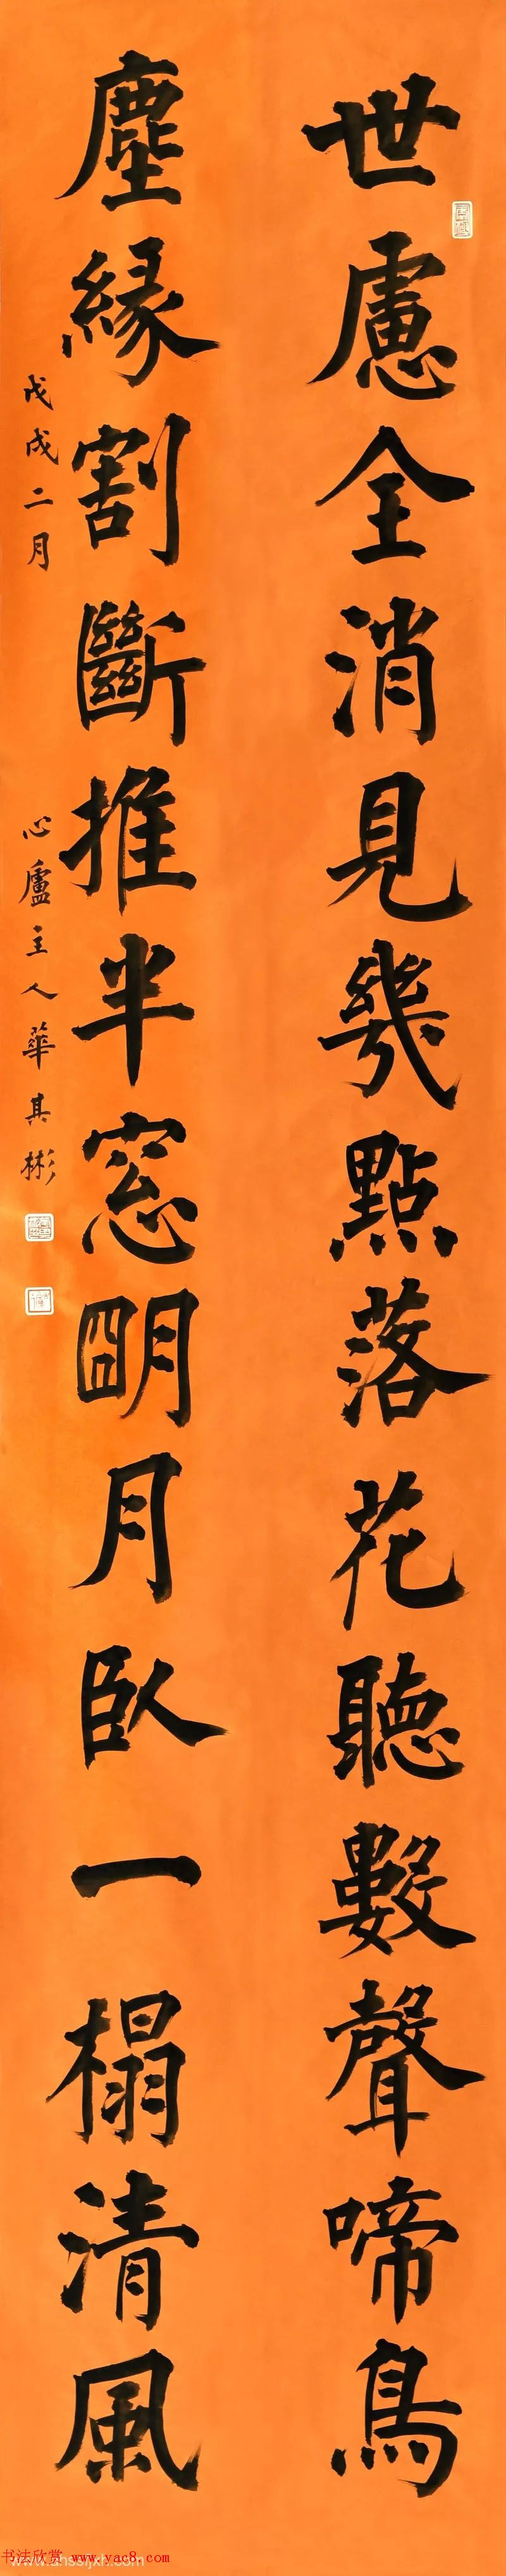 世慮全消見幾點落花聽數聲啼鳥
塵緣割斷推半窓朙月臥一榻清風
戊戌二月
心廬主人華其彬
书法欣赏 www.yac8.com